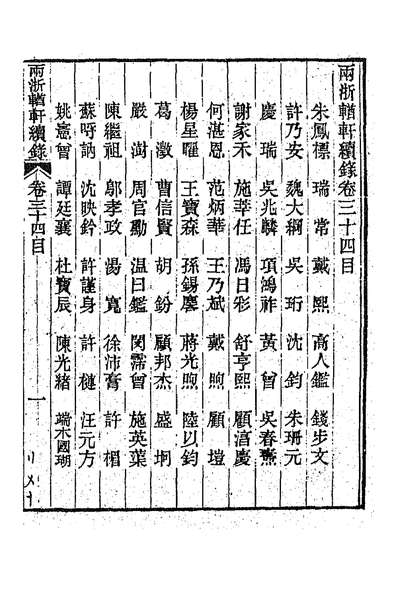 兩浙輶軒續錄卷三十四目
朱鳳標 瑞常 戴熙 高人鑑 錢步文
許乃安 魏大綱 吳珩 沈鈞 朱珊元
慶瑞 吳兆麟 項鴻祚 黃曾 吳春燾
謝家禾 施莘任 馮日彩 舒亨熙 顧湻慶
何湛恩 范炳華 王乃斌 戴煦 顧塏
楊星曜 王寶森 孫錫麐 蔣光煦 陸以鈞
葛澂 曹信賢 胡鈖 顧邦杰 盛坰
嚴澍 周官勳 温曰鑑 閔霈曾 施英蕖
陳繼祖 鄔孝政 湯寬 徐沛膏 許楣
蘇呀訥 沈映鈐 許謹身 許槤 汪元方
姚憲曾 譚廷襄 杜寶辰 陳光緒 端木國瑚
兩浙輶軒續錄 卷三十四目 一